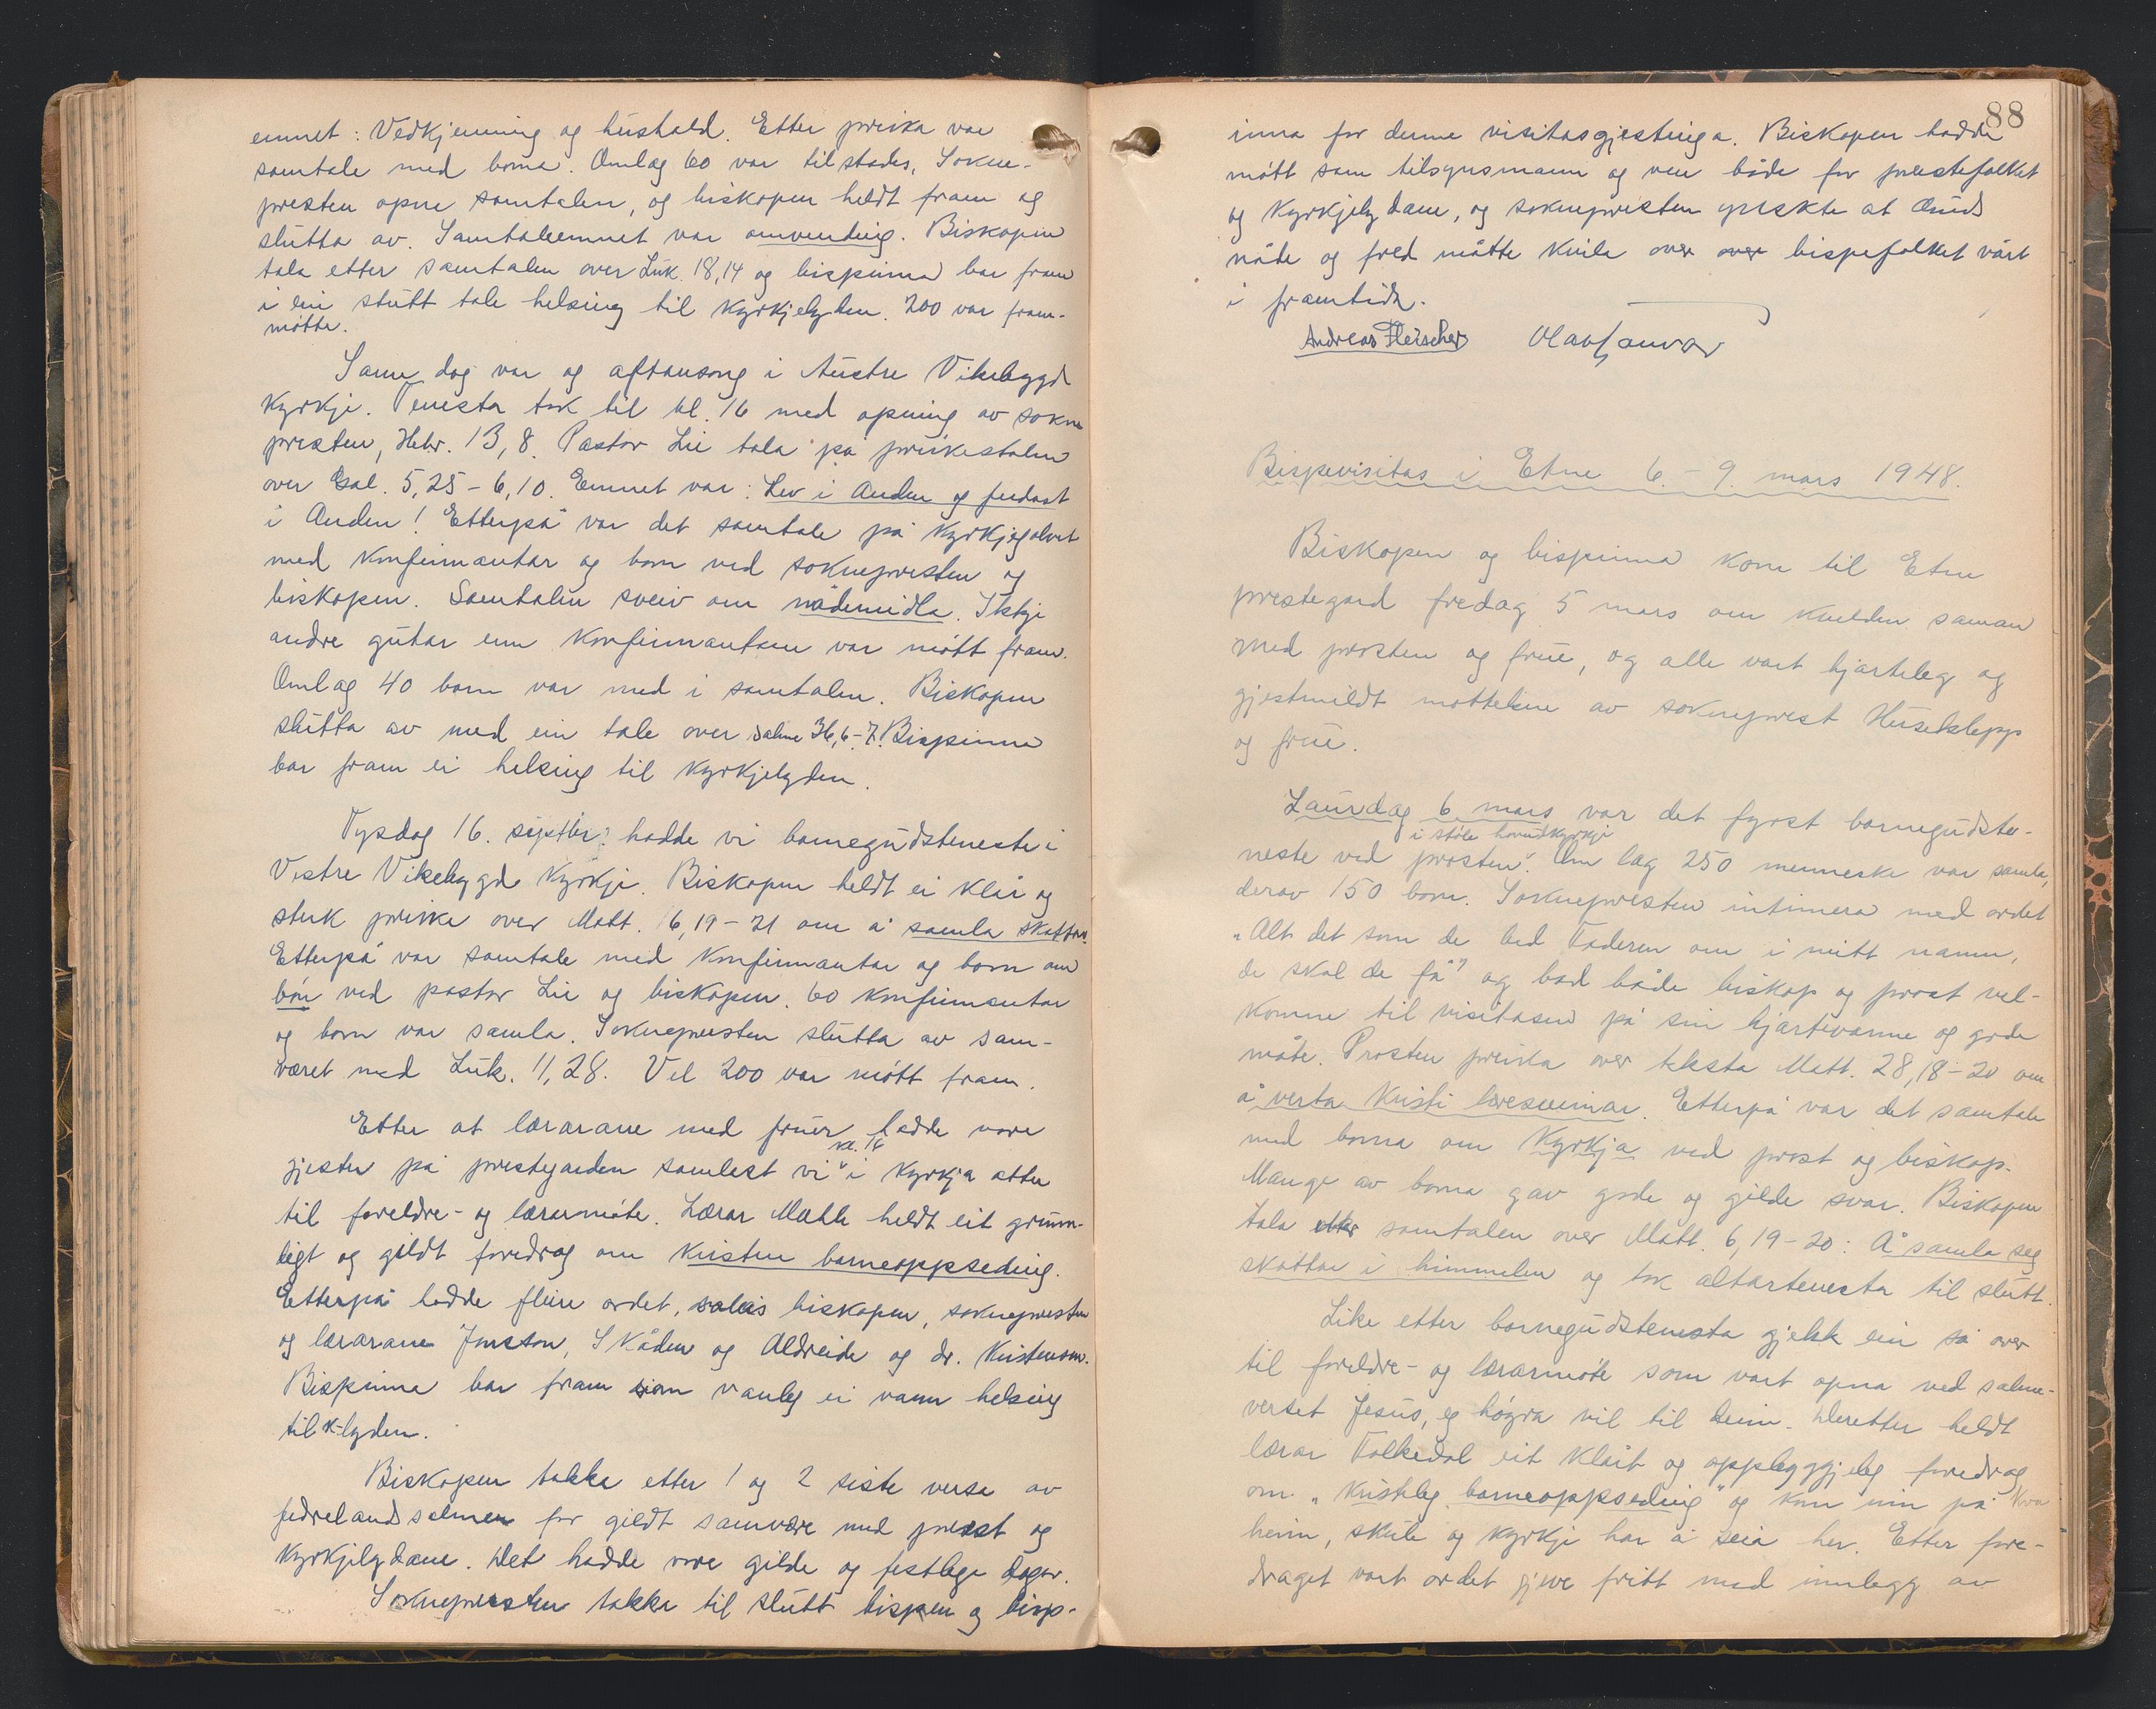 emnet: Vedkjenning og hushald. Etter preika var
samtale med borna. Omlag 60 var tilstades, Sokne-
presten opna samtalen, og biskopen heldt fram og
slutta av. Samtaleemnet var omvending. Biskopen
tala etter samtalen over Luk. 18,14 og bispinna bar fram
i ein stutt tale helsing til kyrkjelyden. 200 var fram-
møtte.
Same dag var og aftansong i Austre Vikebygd
Kyrkje. Tenesta tok til kl. 16 med opning av sokne
presten, Hebr. 13,8. Pastor Lie tala på preikestolen
over Gal. 5,25-6,10. Emnet var: Lev i Anden og ferdast
i Anden! Etterpå var det samtale på kyrkjegolvet
med konfirmantar og born ved soknepresten og
biskopen. Samtalen sveiv om nådemidla. Ikkje
andre gutar enn konfirmantane var møtt fram.
Omlag 40 born var med i samtalen. Biskopen
slutta av med ein tale over salme 36,6-7. Bispinna
bar fram ei helsing til kyrkjelyden.
Tysdag 16. septbr. hadde vi barnegudsteneste i
Vestre Vikebygd Kyrkje. Biskopen heldt ei klår og
sterk preike over Matt. 6,19-21 om å samla skattar.
Etterpå var samtale med konfirmantar og born om
bøn ved pastor Lie og biskopen. 60 konfirmantar
og born var samla. Soknepresten slutta av sam-
været med Luk. 11,28. Vel 200 var møtt fram.
Etter at lærarane med fruer hadde vore
kl. 16
gjester på prestegarden samlest vi i kyrkja atter
til foreldre- og lærarmøte. Lærar Mæhle heldt eit grunn-
ligt og gildt foredrag om kristen barneoppseding.
Etterpå hadde fleire ordet, soleis biskopen, soknepresten
og lærarane Jonston, Skåden og Aldreide og dr. Kristensen.
Bispinna bar fram som vanleg ei varm helsing
til k-lyden.
Biskopen takka etter 1 og 2 siste versa av
fedrelandssalmen for gildt samvære med prest og
kyrkjelydane. Det hadde vore gilde og festlege dagar.
Soknepresten takka til slutt bispen og bisp-
88
inna for denne visitasgjestinga. Biskopen hadde
møtt som tilsynsmann og ven både for prestefolket
og kyrkjelydane, og soknepresten ynskte at Guds
nåde og fred måtte kvila over over bispefolket vårt
i framtida.
Andreas Fleischer
Bispevisitas i Etne 6.-9. mars 1948.
Biskopen og bispinna kom til Etne
prestegard fredag 5 mars om kvelden saman
med prosten og frue, og alle vart hjarteleg og
gjestmildt mottekne av sokneprest Huseklepp
og frue.
Laurdag 6. mars var det fyrst barnegudste-
i Støle hovudkyrkje
neste ved prosten. Om lag 250 menneske var samla,
derav 150 born. Soknepresten intimera med ordet
"Alt det som de bed Faderen om i mitt namn,
de skal de få" og bad både biskop og prost vel-
komne til visitasen på sin hjartevarme og gode
måte. Prosten preika over teksta Matt. 28,18-20 om
å verta Kristi læresveinar. Etterpå var det samtale
med borna om Kyrkja ved prost og biskop.
Mange av borna gav gode og gilde svar. Biskopen
tala etter samtalen over Matt. 6,19-20: Å samla seg
skattar i himmelen og tok altartenesta til slutt.
Like etter barnegudstenesta gjekk ein så over
til foreldre- og lærarmøte som vart opna ved salme-
verset Jesus, eg høyra vil til deim. Deretter heldt
lærar Folkedal eit klårt og oppbyggjeleg foredrag
om "Kristeleg barneoppseding" og kom inn på kva
heim, skule og kyrkje har å seia her. Etter fore-
draget vart ordet gjeve fritt med innlegg av